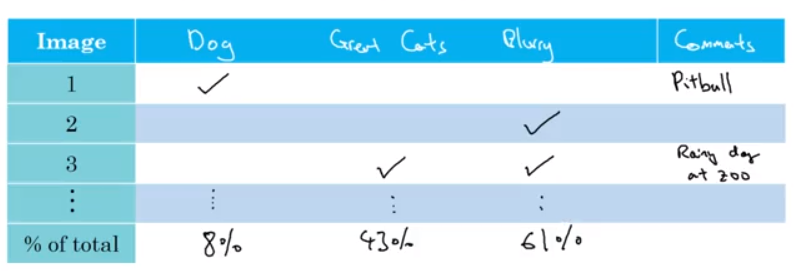 Image Dog Great Cats Blurry Comments
1 ✓ Pitbull
2 ✓
3 ✓ ✓ Rainy day
at zoo
⋮ ⋮ ⋮ ⋮
% of total 8% 43% 61%